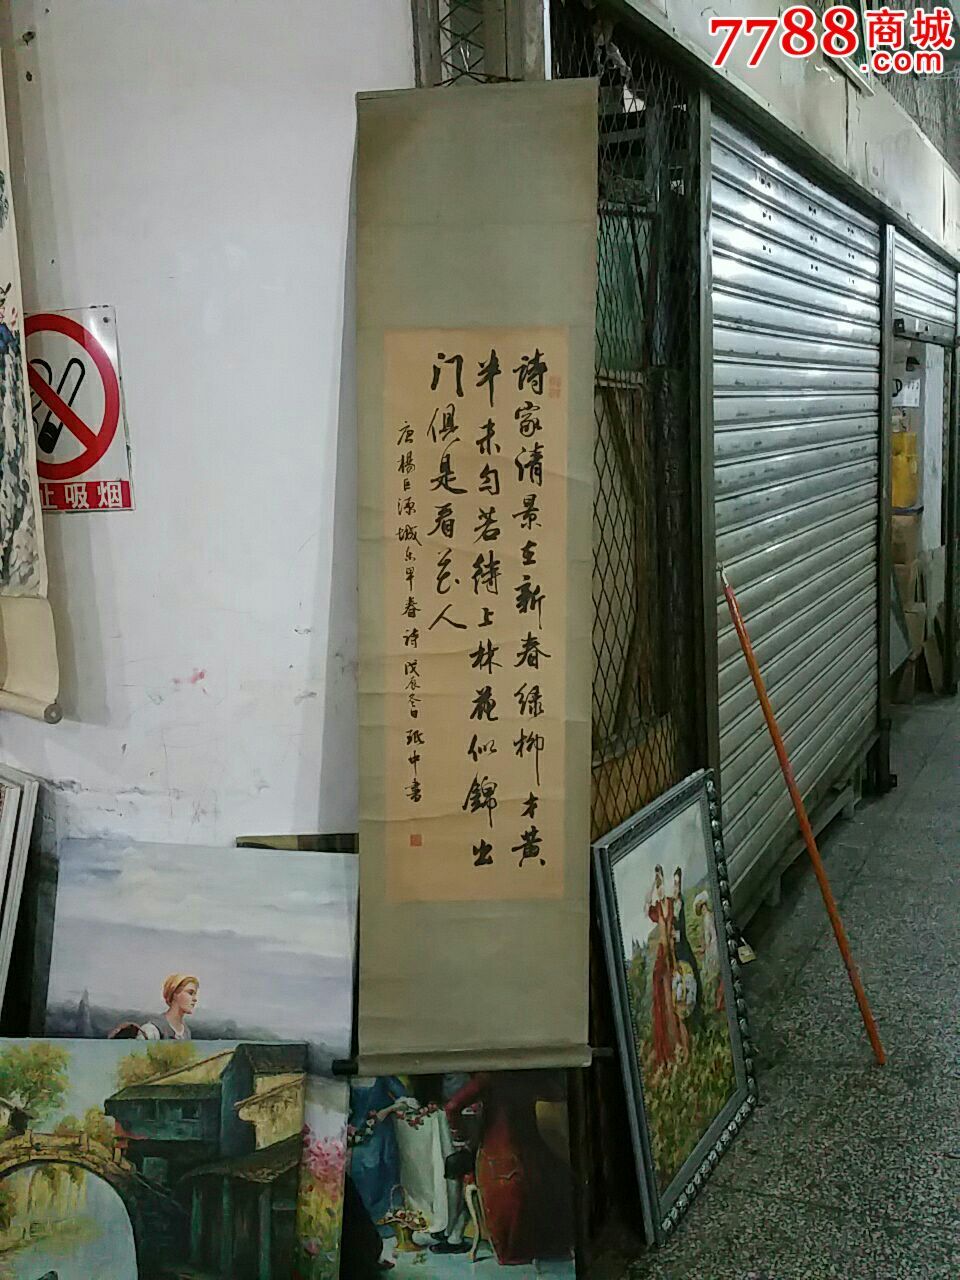 7788商城
.com
诗家清景在新春绿柳才黄
半未匀若待上林花似錦出
门俱是看花人
唐楊巨源城东早春诗 戊辰冬日 中書
止吸烟